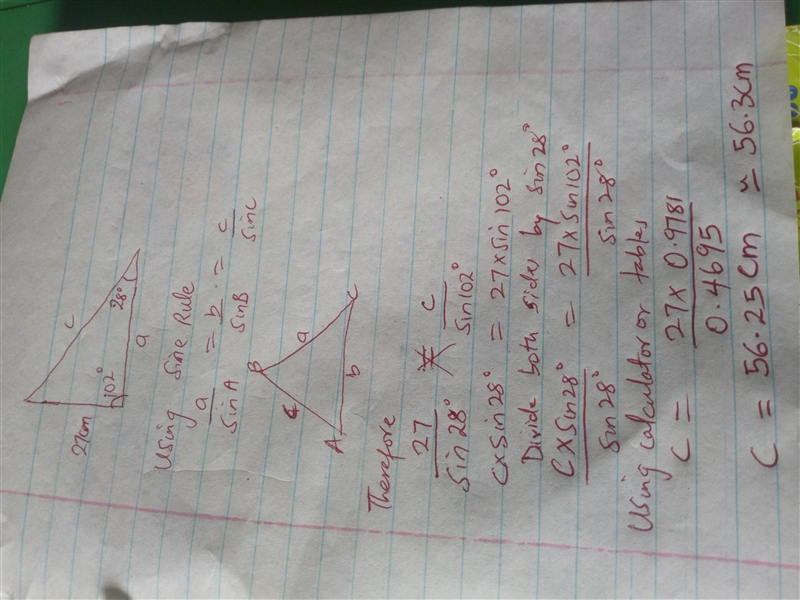 27cm
102°
28°
c
a
Using Sine Rule
a/SinA = b/SinB = c/SinC
A
B
C
c
a
b
Therefore
27/Sin28° = c/Sin102°
C x Sin28° = 27 x Sin 102°
Divide both sides by Sin 28°
C x Sin28°/Sin 28° = 27 x Sin102°/Sin 28°
Using calculator or tables
C = 27 x 0.9781/0.4695
C = 56.25cm ≃ 56.3cm